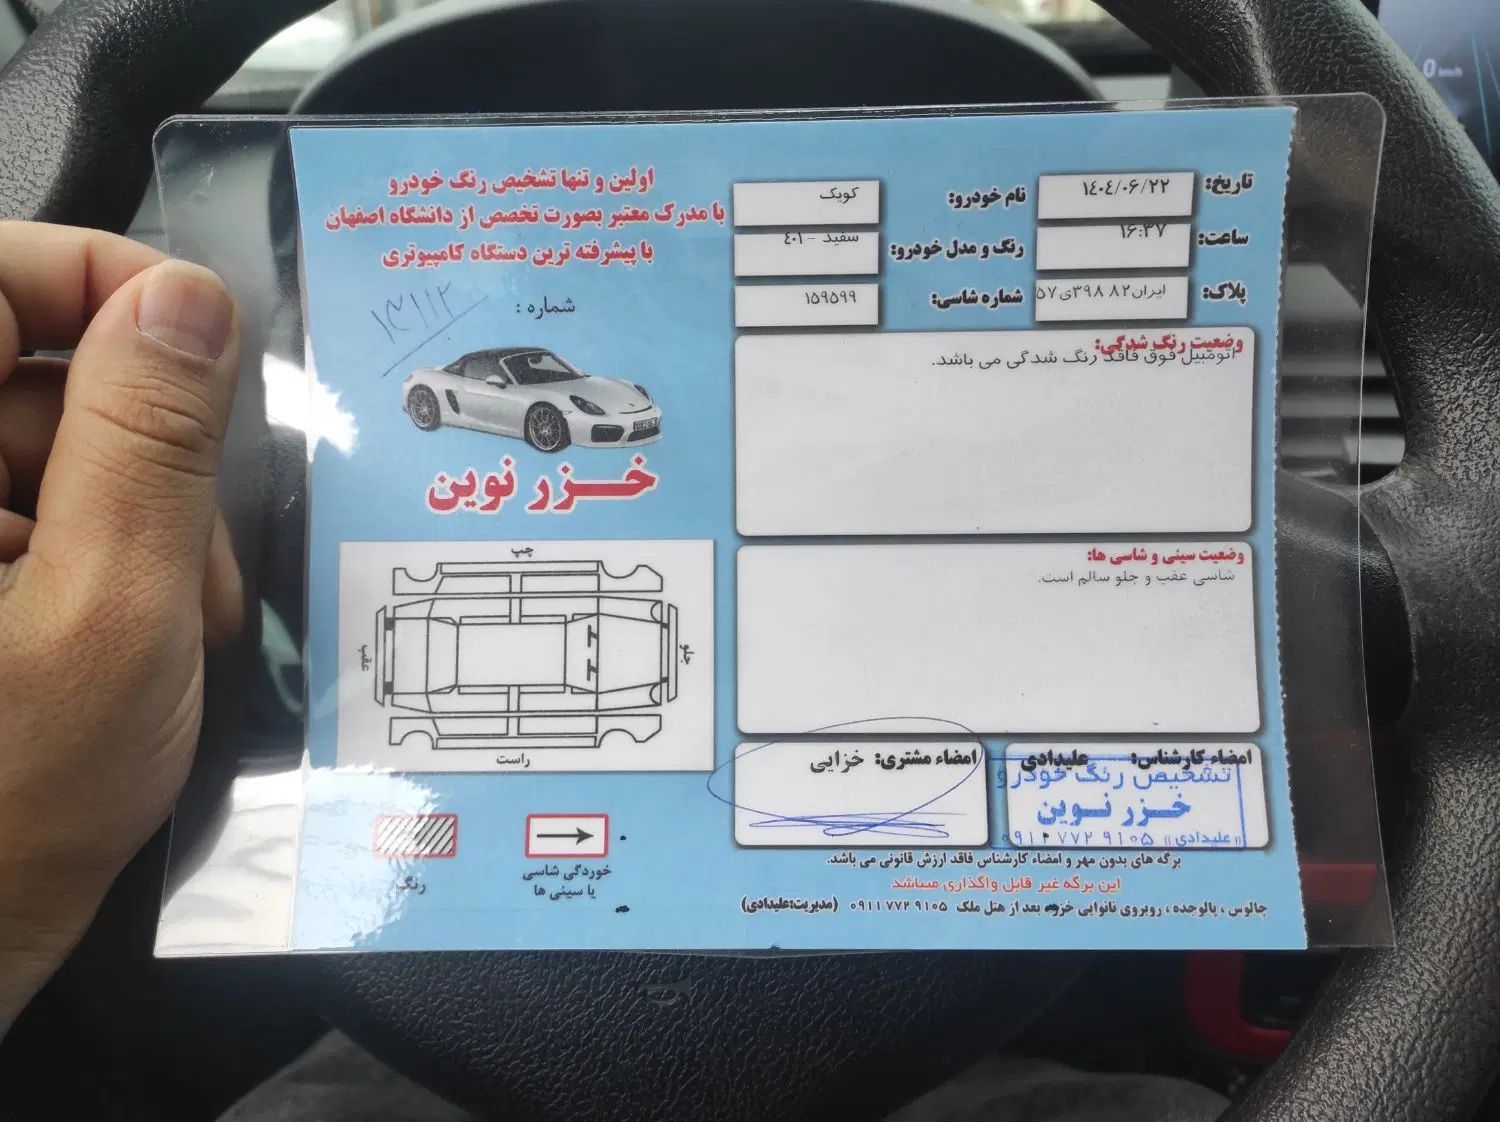 تاریخ: ۱٤۰٤/۰۶/۲۲
نام خودرو: کویک
ساعت: ۱۶:۳۷
رنگ و مدل خودرو: سفید - ٤۰۱
پلاک: ایران۸۲ ۳۹۸ی۵۷
شماره شاسی: ۱۵۹۵۹۹
وضعیت رنگ شدگی:
اتومبیل فوق فاقد رنگ شدگی می باشد.
وضعیت سینی و شاسی ها:
شاسی عقب و جلو سالم است.
امضاء کارشناس: علیدادی
تشخیص رنگ خودرو
خزر نوین
«علیدادی» ۰۹۱۱ ۷۷۲ ۹۱۰۵
امضاء مشتری: خزایی
برگه های بدون مهر و امضاء کارشناس فاقد ارزش قانونی می باشد.
این برگه غیر قابل واگذاری میباشد
چالوس ، پالوجده ، روبروی نانوایی خزر، بعد از هتل ملک ۰۹۱۱ ۷۷۲ ۹۱۰۵ (مدیریت:علیدادی)
اولین و تنها تشخیص رنگ خودرو
با مدرک معتبر بصورت تخصص از دانشگاه اصفهان
با پیشرفته ترین دستگاه کامپیوتری
شماره :
خزر نوین
چپ
جلو
عقب
راست
خوردگی شاسی
یا سینی ها
رنگ
0 km/h